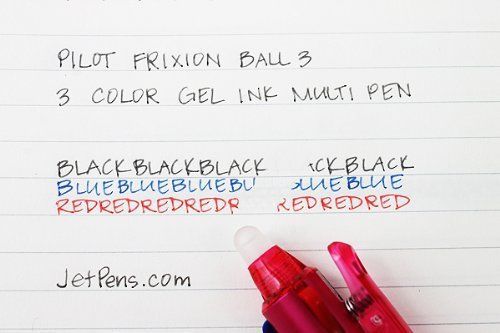 PILOT FRIXION BALL 3
3 COLOR GEL INK MULTI PEN
BLACKBLACKBLACK CKBLACK
BLUEBLUEBLUEBL LUEBLUE
REDREDREDREDR REDREDRED
JetPens.com